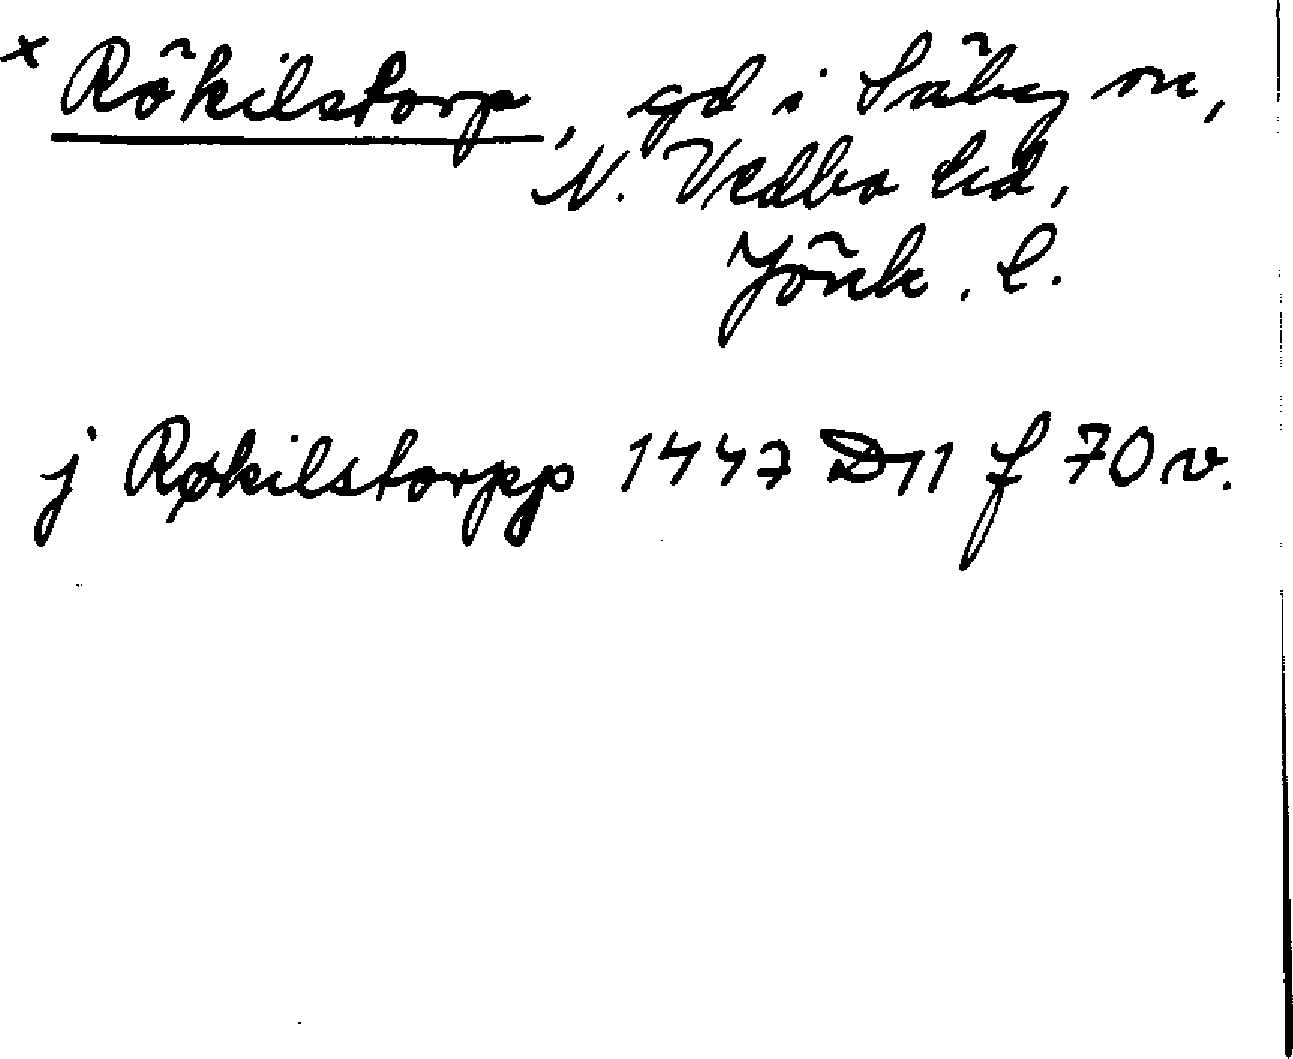 x Rökilstorp, gd i Säby sn,
N. Vedbo hd,
Jönk. l.
j Røkilstorpp 1447 D 11 f 70 v.